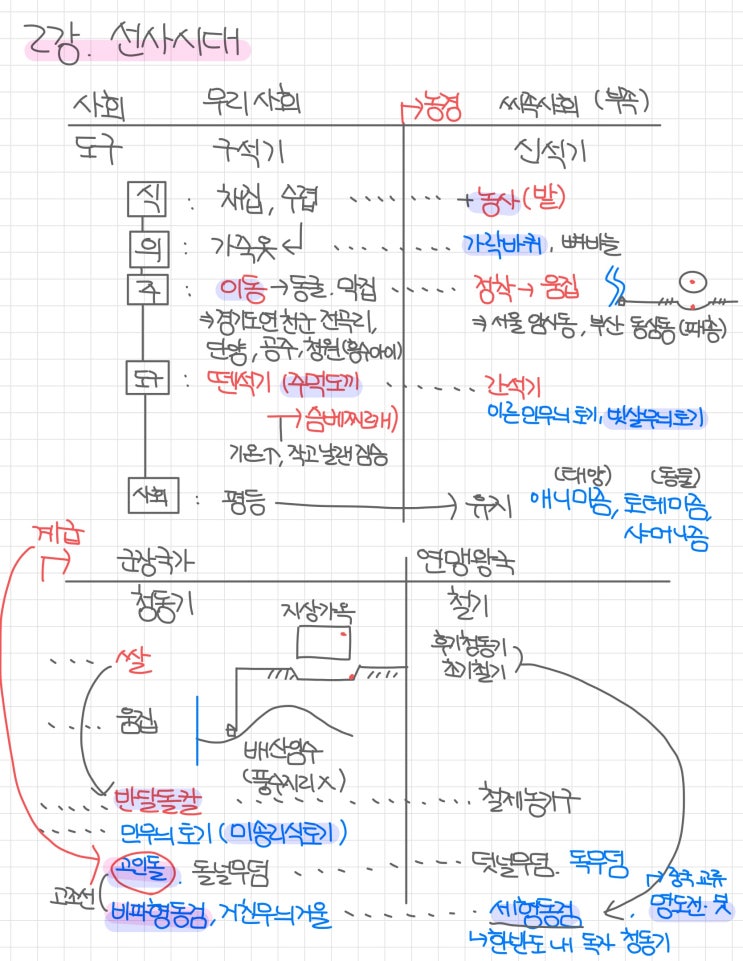 2강. 선사시대
사회 우리사회 →농경 씨족사회 (부족)
도구 구석기 신석기
식 : 채집, 수렵 + 농사(밭)
의 : 가죽옷 가락바퀴, 뼈바늘
주 : 이동→동굴.막집 정착→움집
⇒경기도연천군 전곡리, ⇒ 서울 암사동, 부산 동삼동(패총)
단양, 공주, 청원(흥수아이)
도구 : 뗀석기 (주먹도끼 간석기
→슴베찌르개) 이른민무늬토기, 빗살무늬토기
기온↑, 작고날랜짐승
(태양) (동물)
사회 : 평등 → 유지 애니미즘, 토테미즘,
샤머니즘
계급
군장국가 연맹왕국
청동기 지상가옥 철기
후기청동기
초기철기
쌀
움집
배산임수
(풍수지리X)
반달돌칼 철제농기구
민무늬토기(미송리식토기)
고인돌. 돌널무덤 덧널무덤. 독무덤
고조선 →중국교류
비파형동검, 거친무늬거울 세형동검, 명도전·붓
↳한반도 내 독자 청동기